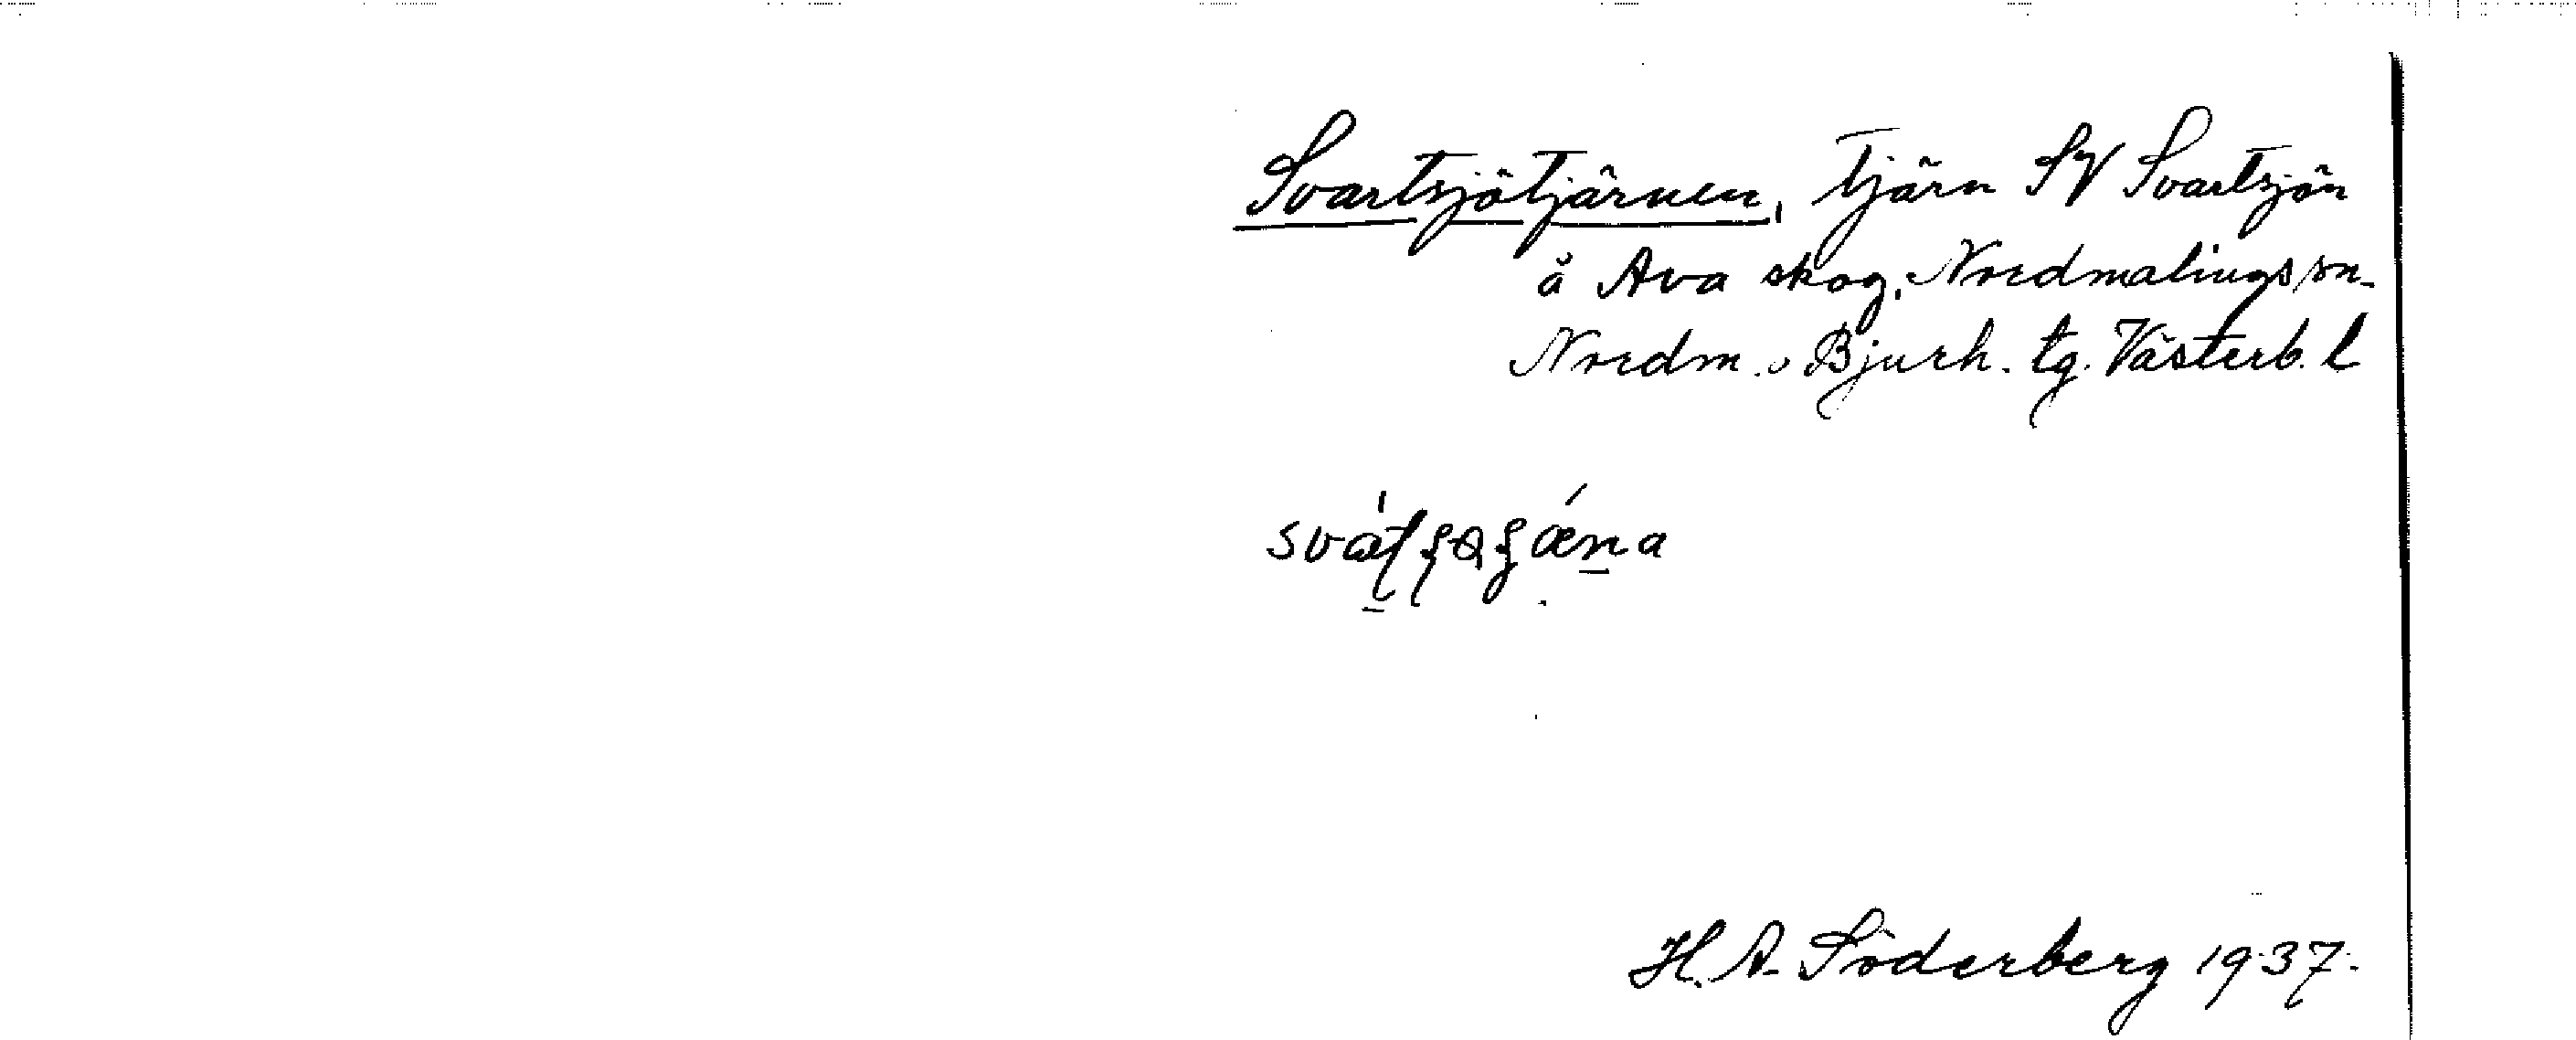 Svartsjötjärnen, tjärn SV Svartsjön
å Ava skog, Nordmalings sn.
Nordm. o Bjurh. tg. Västerb. l
H. A. Söderberg 1937.